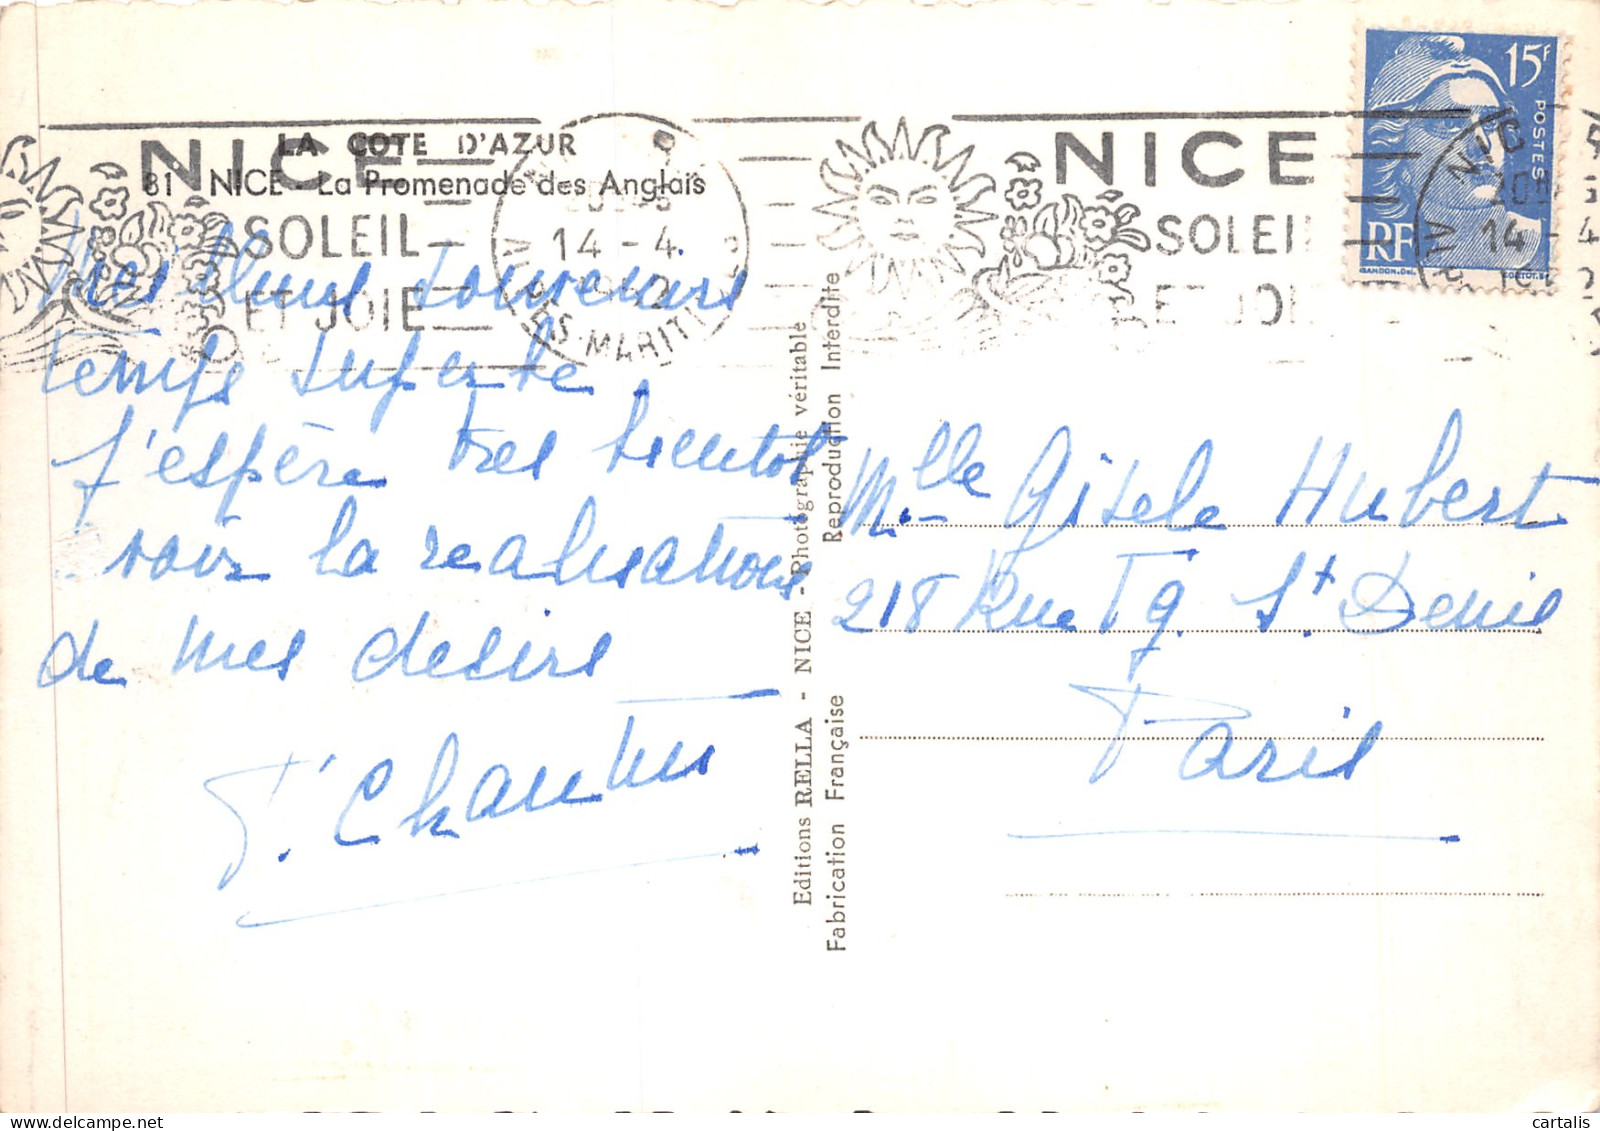 LA COTE D'AZUR
81 NICE - La Promenade des Anglais
NICE
SOLEIL
ET JOIE
14 - 4
ALPES-MARITIMES
Mes bons souvenirs
temps superbe
J'espère très bientot
voir la realisations
de mes desirs
Editions RELLA - NICE - Photographie véritable
Fabrication Française
Reproduction Interdite
NICE
SOLEI
ET JOI
15F
POSTES
RF
GANDON.Del.
NIC
14 - 4
Mlle Gisele Hubert
218 Rue Fg. St. Denis
Paris
cartalis